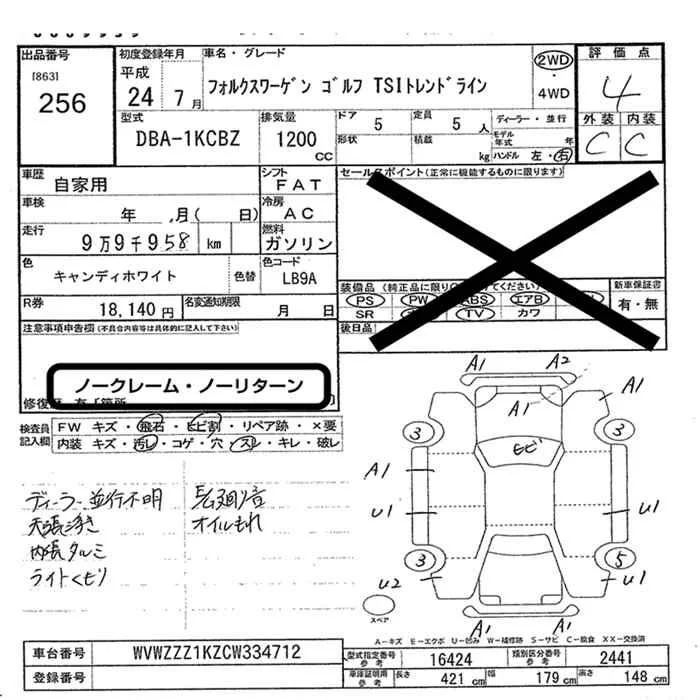 出品番号 初度登録年月 車名・グレード 2WD 評価点
[863] 平成 フォルクスワーゲン ゴルフ TSIトレンドライン ・ 4
256 24年 7月 4WD
型式 排気量 ドア 定員 ディーラー・並行 外装 内装
DBA-1KCBZ 1200 CC 5 5人 モデル年式 年 C C
形状 積載 kg ハンドル 左・右
車歴 シフト セールスポイント(正常に機能するものに限ります)
自家用 FAT
車検 冷房
年 月( 日) AC
走行 燃料
9万9千958 km ガソリン
色 色コード 装備品(純正品に限り ください) 新車保証書
キャンディホワイト 色替 LB9A PS PW ABS エアB 有・無
R券 名変通知期限 SR TV カワ
18,140円 月 日 後日品
注意事項申告欄(不具合内容等は具体的に記入して下さい)
ノークレーム・ノーリターン
修復歴 有「箇所
検査員記入欄 FW キズ・飛石・ヒビ割・リペア跡・×要
内装 キズ・汚レ・コゲ・穴・スレ・キレ・破レ
A1 A2
A1 A1
3 3
ヒビ
A1
U1 U1
3 5
U2 U1
A1
A1
スペア
ディーラー並行不明
天張浮き
内張タルミ
ライトくもり
オイルもれ
A-キズ E-エクボ U-凹み W-補修跡 S-サビ C-腐食 XX-交換済
車台番号 WVWZZZ1KZCW334712 型式指定番号 参考 16424 類別区分番号 参考 2441
登録番号 車庫証明用 参考 長さ 421 cm 幅 179 cm 高さ 148 cm